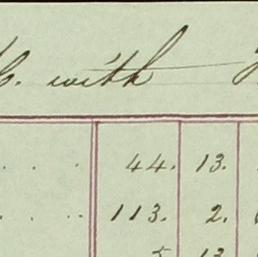 with
44. 13.
113. 2.